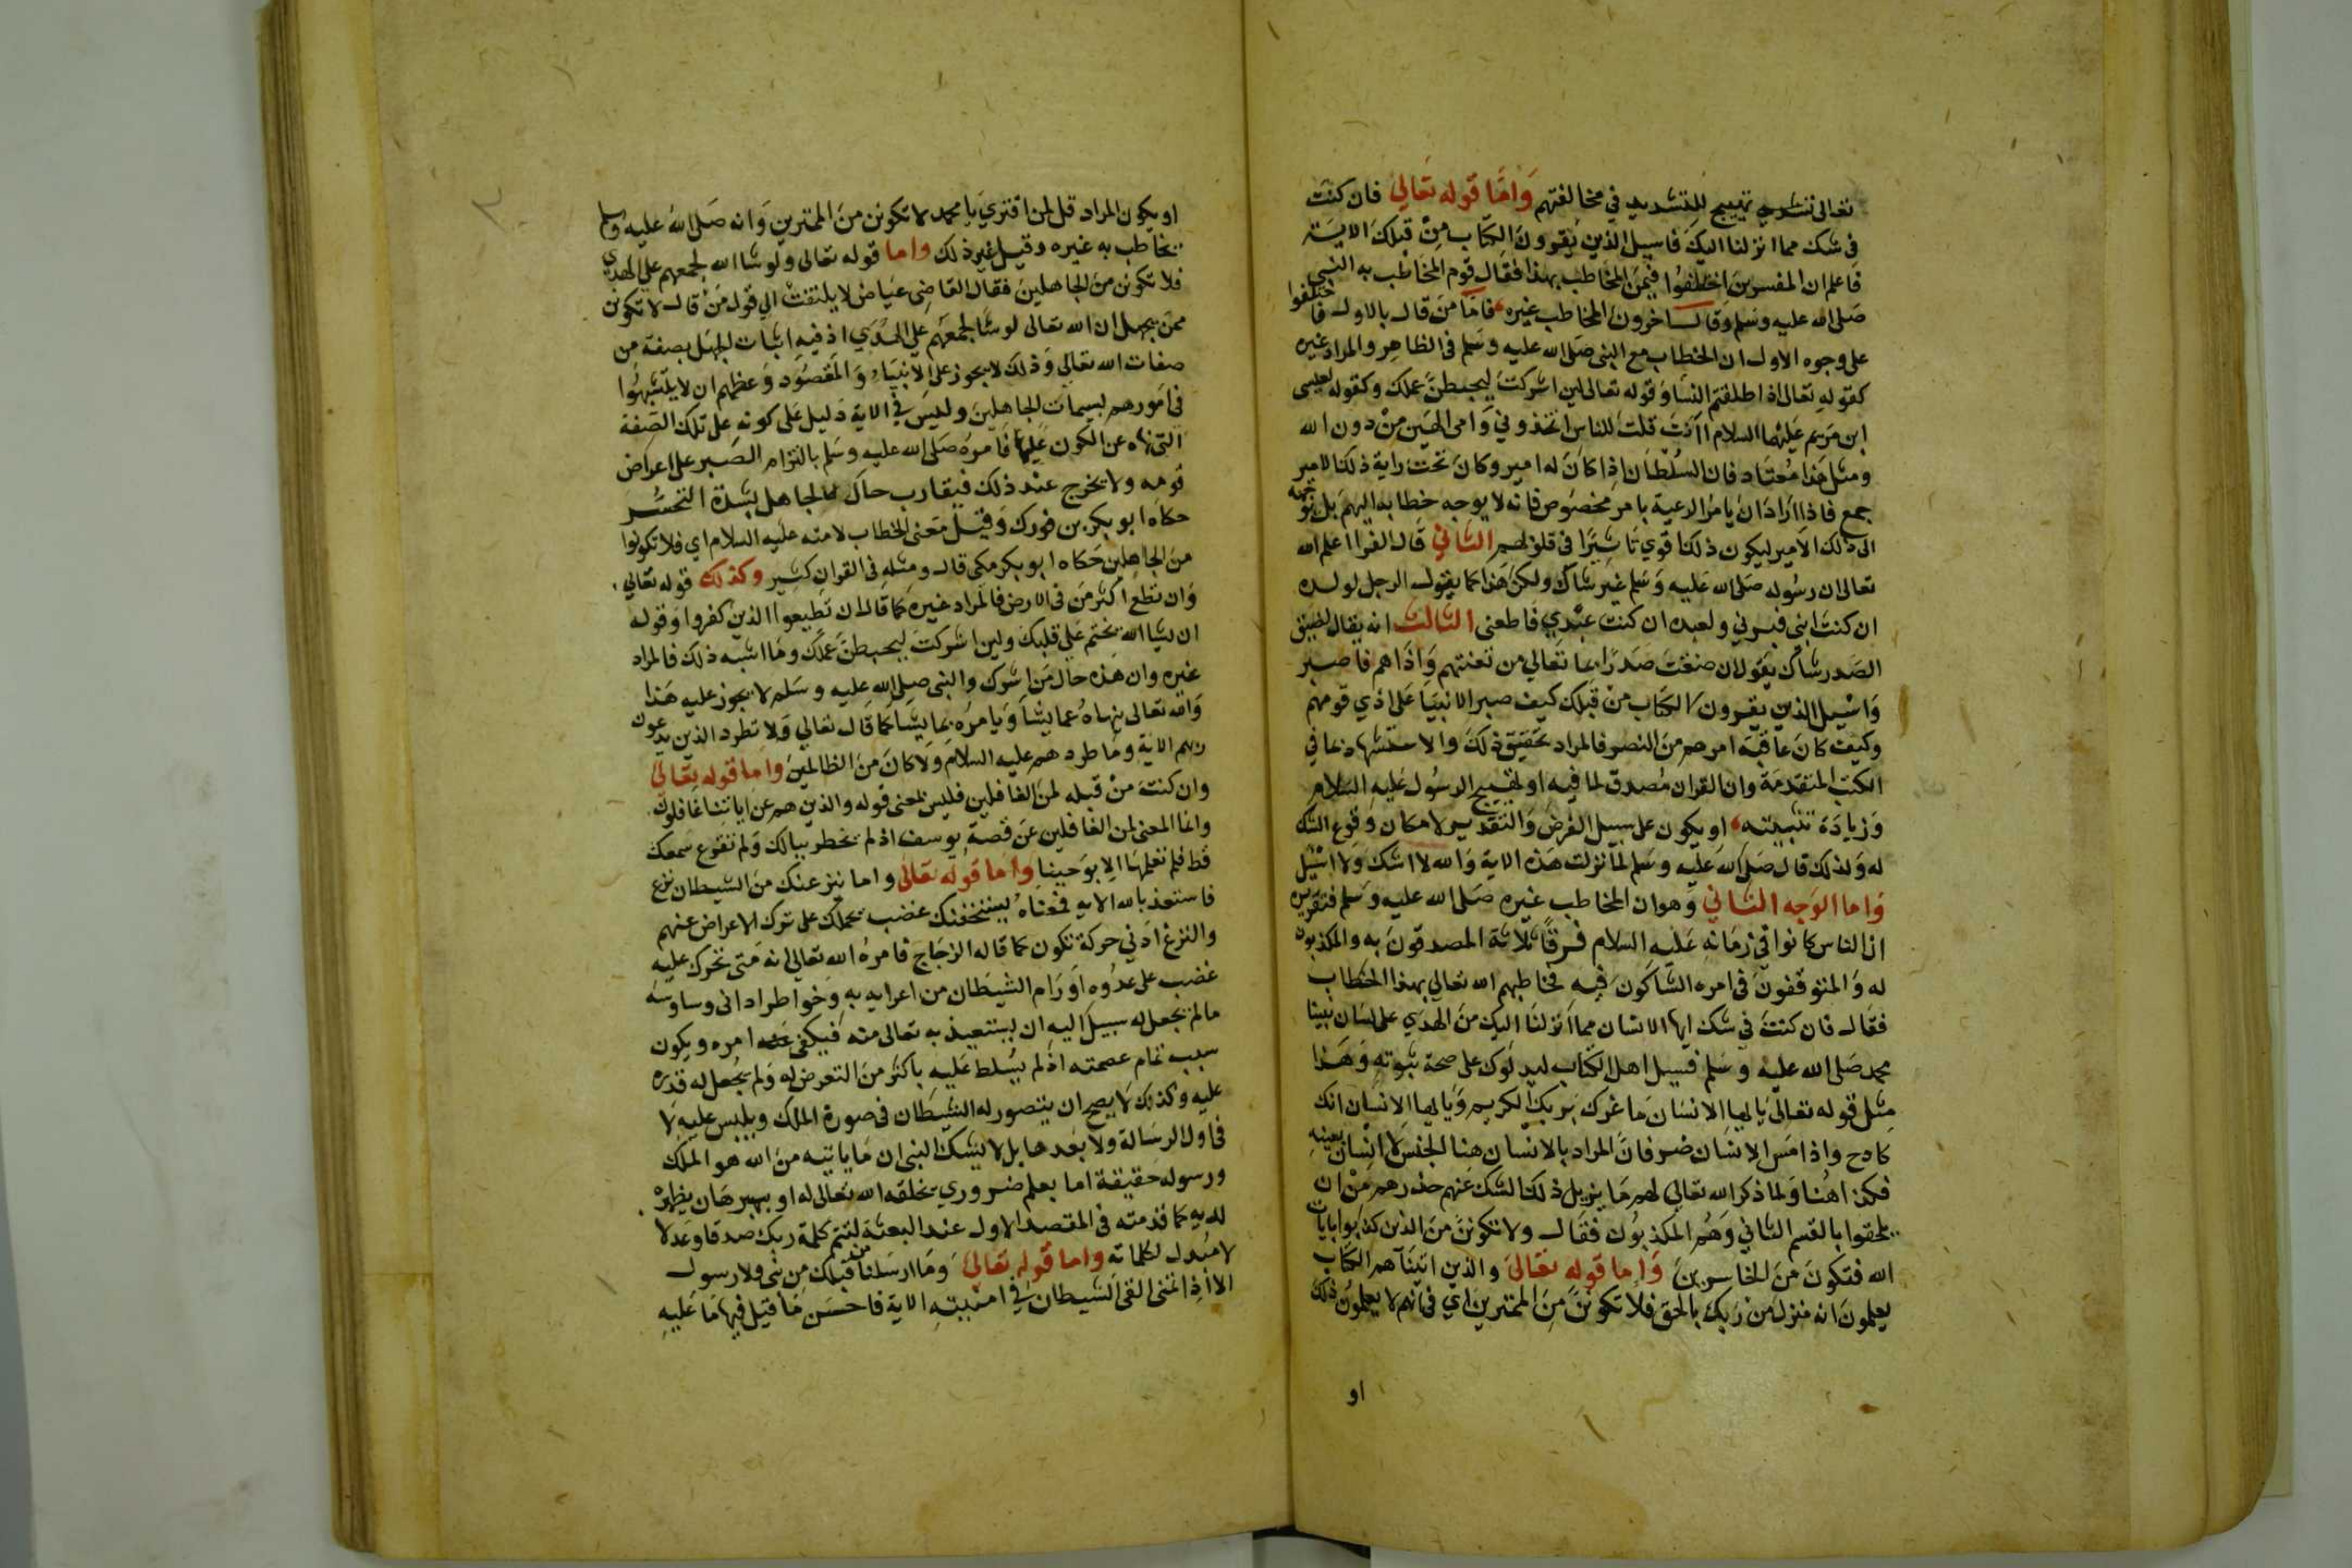 تعالى تشديد تهييج للتشديد في مخالفتهم وَامَّا قوله تعَالى فان كنت
في شك مما انزلنا اليكَ فاسيل الذين يقروون الكتاب مِنْ قبلكَ الاية
فَاعلم ان المفسرين اختلفُوا فيمَن المخَاطب بهذا فقال قوم المخَاطب به النبي
صَلى الله عليه وسَلم وقال اخرون المخاطب غيره فامَّا مَن قال بالاول فاختلفوا
على وجوه الاول ان الخطاب مع النبى صَلى الله عليه وسَلم فى الظاهر والمراد غيره
كقولهِ تعالى اذا طلقتم النسَا وَقوله تعالى لين اشركتَ ليحبطنَّ عملك وكقوله لعيسى
ابن مَريم عَليهما السلام اأنتَ قلتَ للناس اتخذوني وَامى الهَين منْ دون الله
ومثل هَذا مُعتاد فان السُلطَان اِذا كانَ له امير وكانَ تحت راية ذلكَ الامير
جمع فاذا ارَادَ ان يامرَ الرعية بامر مخصُوص فانه لا يوجه خطابه اليهم بل يوجهه
الى ذلك الامير ليكون ذلك اقوي تاثيرًا فى قلوبهم الثاني قال الفرا اعلم الله
تعالى ان رسُوله صَلى الله عَليه وَسَلم غير شاك ولكن هَذا كما يقول الرجل لولده
ان كنت ابني فبرني ولعبده ان كنت عبْدي فاطعنى الثالث انه يقال لضيق
الصَدر شاك يقول ان ضقت صَدرًا بما تعالي من تعنتهم وَاذَاهم فاصبر
وَاسْيل الذين يقرون الكتاب من قبلك كيف صبر الانبيَا عَلى اذي قومهم
وكيف كانَ عاقبَة امرهم منَ النصر فالمراد تحقيق ذلكَ والاستشهاد بما في
الكتب المتقدمَة وان القران مُصدق لما فيه او تهييج الرسُول عَليه السَّلام
وَزيادَة تثبيته او يكون على سبيل الفرضِ وَالتقدير لا امكان وقوع الشك
له وَلذلك قال صَلى الله عَليه وسلم لمَّا نزلت هَذه الاية وَالله لا اشك وَلا اسْيل
وَاما الوَجه الثاني وَهوان المخاطب غيره صَلى الله عليه وسَلم فتقريره
ان الناس كانوا في زمَانهِ عَليه السلام فرقًا ثلاثة المصدقون به والمكذبون
له وَالمتوقفونَ فى امره الشاكون فيه فخاطبهم الله تعالي بهذا الخطاب
فقال فان كنتَ في شك ايها الانسان مما اَنزلنَا اليك منَ الهدَي على لسَان نبينا
محمد صَلى الله عليه وسَلم فسيل اهل الكتاب ليدلوك على صحة نبوته وَهَذا
مِثل قوله تعالىَ يَا ايها الانسَانَ مَا غرك بَربكَ الكريم وَيَا ايها الانسان انك
كادح واذا مَس الانسَان ضر فانَّ المراد بالانسَان هنا الجنسَ لا انسَان بعينهِ
فكذا هُنا وَلما ذكر الله تعالي لهم مَا يزيل ذلك الشك عَنهم حذرهم مِنْ ان
يلحقوا بالقسم الثاني وَهُم المكذبوُن فقال ولا تكونَنَّ منَ الذين كذبوا بايات
الله فتكونَ مَنَ الخاسرينَ وَامِا قوله تعَالىَ والذين اتينَاهم الكتاب
يعلمونَ انه منزل من رَبك بالحق فلا تكونَنَّ مِنَ الممترين اي فى انهم لا يعلمون ذلك
او
او يكون المراد قل لمن افتري يا محمد لا تكونن منَ الممترين وَانه صَلى اللهُ عليه وسلم
يخاطب به غيره وقيل غير ذلك واما قوله تعالى ولو شا الله لجمعهم على الهدي
فلا تكونن مَن الجاهلينَ فقال القاضِى عيَاض لا يلتفتْ الي قول مَنْ قال لا تكونن
ممن يجهل ان الله تعالى لو شَا لجمعهم علي الهُدَي اذ فيه اثبات الجهَل بصفة من
صفات الله تعالي وَذلكَ لا يجوز على الانبيَاء وَالمقصُود وَعظهم ان لا يتشبهُوا
فى امورهم بسِمات الجاهلين وليسَ فِي الاية دَليل عَلى كونه على تلك الصّفة
التى نهاه عن الكون عَليهَا فامرهُ صَلى الله عليه وسَلم بالتزام الصّبر على اعراض
قومه ولا يخرج عند ذلك فيقارب حال الجاهل بشدة التحسُّر
حكاه ابو بكر بن فورك وَقيلَ مَعنى الخطاب لامته عليه السلام اي فلا تكونوا
منَ الجاهلين حَكاه ابو بكر مكى قال ومثله فى القران كثير وكذلك قوله تعالي
وَان تطع اكثر مَن فى الارض فالمراد غيره كمَا قال ان تَطيعوا الذين كفروا وَقوله
ان يشا الله يختم عَلي قلبك ولين اشركتَ ليحبطنَّ عَملك ومَا اشبه ذلك فالمراد
غيره وان هذه حال مَن اشرك والنبى صلى الله عليه وسَلم لا يجوز عليه هَذا
وَالله تعالى ينهاهُ عما يشَا وَيَامرُه بمَا يشَا كما قال تعالي وَلا تطرد الذين يدعون
ربهم الاية ومَا طردهم عليه السلام وَلا كانَ منَ الظالمينَ واما قوله تعَاليَ
وان كنتَ منْ قبله لمنَ الغافلين فليس بمعنى قوله والذين هم عن اياتنا غافلون
وانما المعنى لمن الغافلين عنَ قصَة يوسف اذ لم تخطر ببالك ولم تقرع سَمعك
قط فلم تعلمهَا الا بوَحينا وامَا قوله تعَالى واما ينزغنك منَ الشيطان نزغ
فاستعذ بالله الايه فمعناهُ ليستخفنك غضب يحملك على ترك الاعراض عنهم
والنزغ اَدني حركة تكون كما قاله الزجَاج فامرهُ الله تعالي انه مَتى تحرك عليه
غضب على عدُوه اوَ رَام الشيطان من اغرايه به وخواطر ادنى وساوسه
ما لم يجعل له سبيل اليه ان يستعيذ به تعالى منه فيكفى امره ويكون
سبب تمام عصمته اذ لم يُسلط عَليه باكثر منَ التعرض له وَلم يجُعل له قدرة
عليه وكذلك لا يصح ان يتصور له الشيطان فى صورة الملك ويلبس عليه لا
فى اول الرسَالة ولا بَعدها بل لا يشك النبى ان مَا ياتيه منَ الله هو الملك
ورسوله حقيقة اما بعلم ضروري يخلقه الله تعَالى له او ببرهان يظهرْ
لديه كما قدمته فى المقصد الاول عند البعثة لتتم كلمة ربك صدقا وعَدلا
لا مُبدل لكلماته واما قوله تعَالىَ وَمَا ارسَلنا من قبلك من نبى ولا رسول
الا اذِا تمنى القى الشيطان فِي امنيتهِ الاية فاحسَن مَا قيل فيهَا مَا عَليهِ